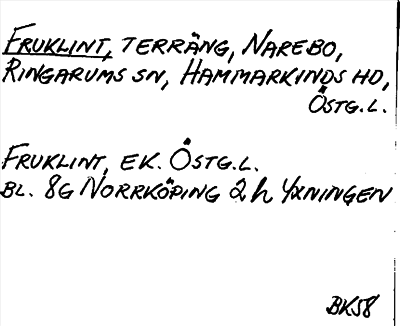 FRUKLINT, TERRÄNG, NAREBO,
RINGARUMS SN, HAMMARKINDS HD,
ÖSTG.L.
FRUKLINT, EK. ÖSTG.L.
BL. 8G NORRKÖPING 2h YXNINGEN
BK58